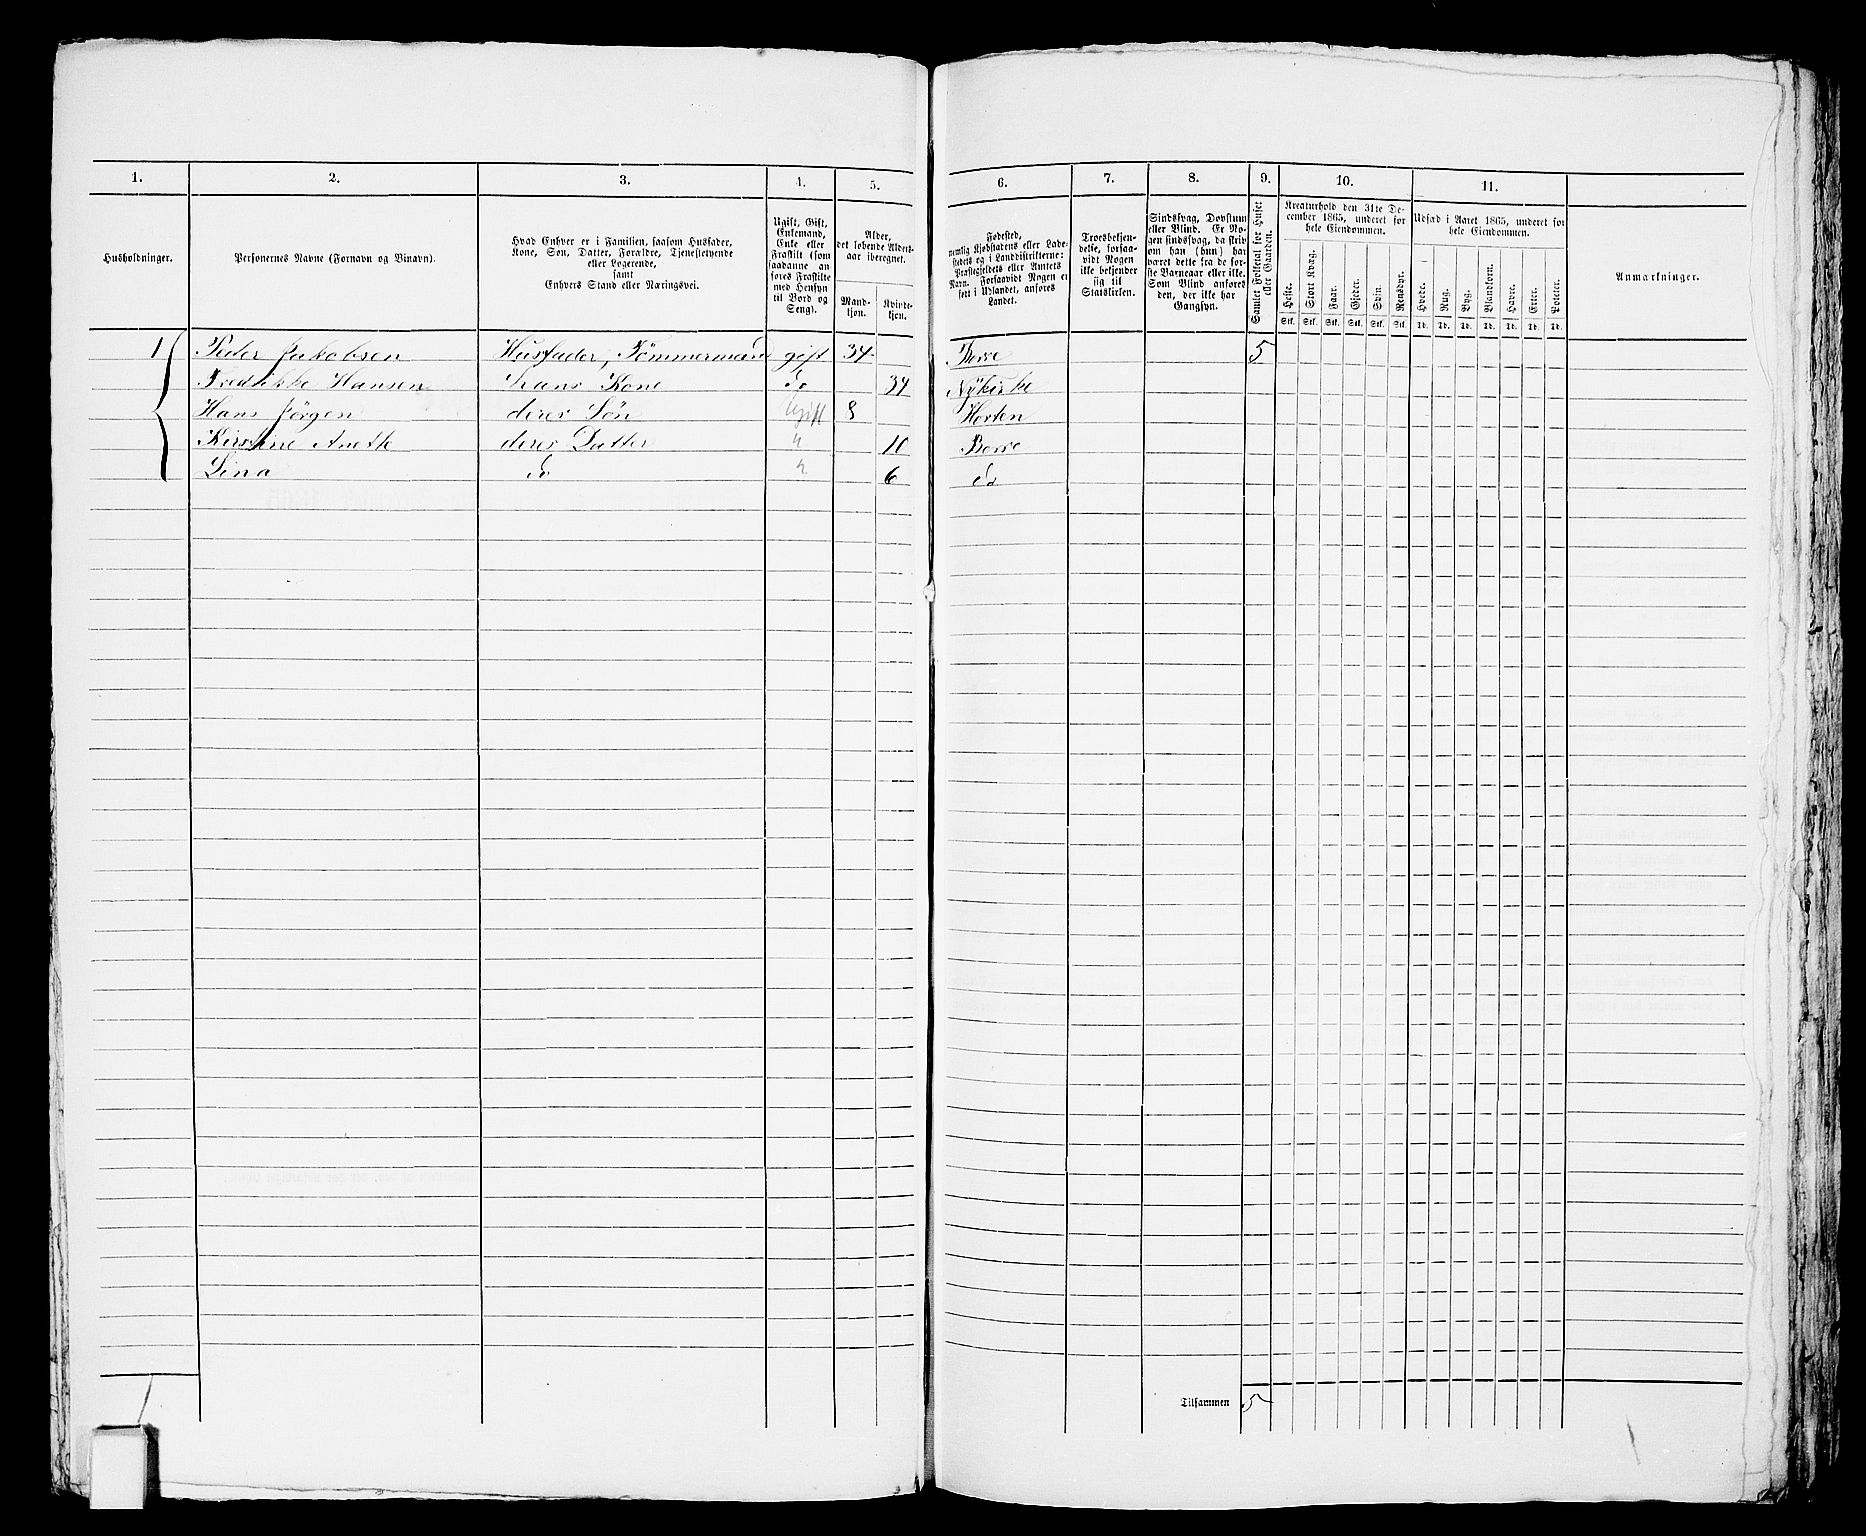 1. 2. 3. 4. 5. 6. 7. 8. 9. 10. 11.
Husholdninger.
Personernes Navne (Fornavn og Binavn).
Hvad Enhver er i Familien, saasom Husfader,
Kone, Søn, Datter, Forældre, Tjenestetyende
eller Logerende,
samt
Enhvers Stand eller Næringsvei.
Ugift, Gift,
Enkemand,
Enke eller
Fraskilt (som
saadanne an
føres Fraskilte
med Hensyn
til Bord og
Seng).
Alder,
det løbende Alders-
aar iberegnet.
Mand-
kjøn.
Kvinde-
kjøn.
Fødested,
nemlig Kjøbstadens eller Lade-
stedets og i Landdistrikterne:
Præstegjeldets eller Amtets
Navn. Forsaavidt Nogen er
født i Udlandet, anføres
Landet.
Troesbekjen-
delse, forsaa-
vidt Nogen
ikke bekjender
sig til
Statskirken.
Sindssvag, Døvstum
eller Blind. Er No-
gen sindssvag, da skriv
om han (hun) har
været dette fra de før-
ste Barneaar eller ikke.
Som Blind anføres
den, der ikke har
Gangsyn.
Samlet Folketal for Huset
eller Gaarden.
Kreaturhold den 31te De-
cember 1865, underet for
hele Eiendommen.
Heste. Stort Kvæg. Faar. Gjeder. Svin. Rensdyr.
Stk. Stk. Stk. Stk. Stk. Stk.
Udsæd i Aaret 1865, underet for
hele Eiendommen.
Hvede. Rug. Byg. Blandkorn. Havre. Erter. Poteter.
Td. Td. Td. Td. Td. Td. Td.
Anmærkninger.
1 Peder Jakobsen Husfader, Tømmermand gift 34 Borre 5
Fredrikke Hansen Hans Kone do 34 Nÿkirke
Hans Jørgen deres Søn Ugift 8 Horten
Kirstine Anette deres Datter " 10 Borre
Lina do " 6 do
1
Tilsammen 5